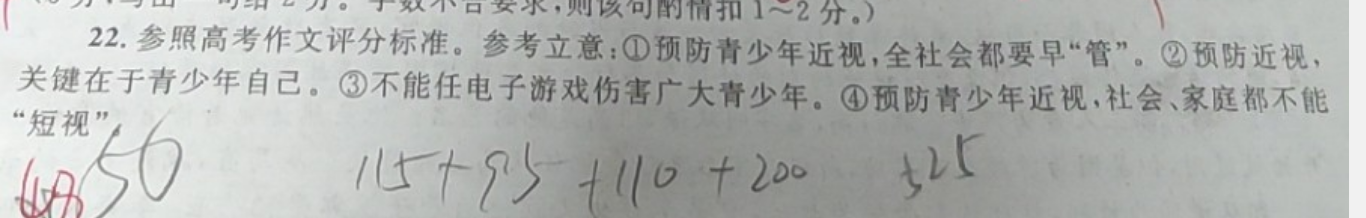 句给2分。字数不合要求,则该句酌情扣1~2分。)
22. 参照高考作文评分标准。参考立意:①预防青少年近视,全社会都要早“管”。②预防近视,
关键在于青少年自己。③不能任电子游戏伤害广大青少年。④预防青少年近视,社会、家庭都不能
“短视”。
50 115+95+110+200 325